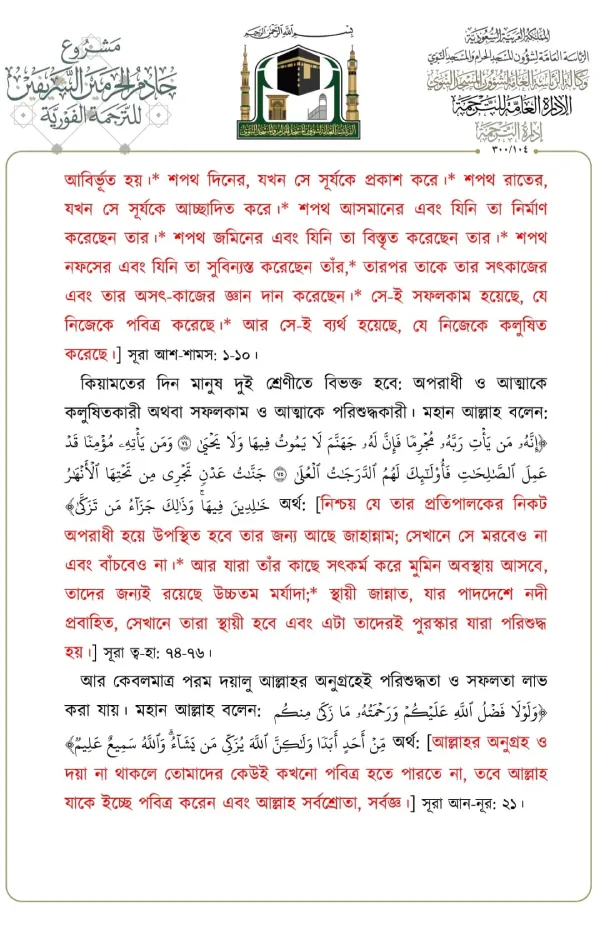 مشروع
خادم الحرمين الشريفين
للترجمة الفورية
بسم الله الرحمن الرحيم
المملكة العربية السعودية
الرئاسة العامة لشؤون المسجد الحرام والمسجد النبوي
وكالة الرئاسة العامة لشؤون المسجد النبوي
الإدارة العامة للترجمة
إدارة الترجمة
٣٠٠/١٠٤
আবির্ভূত হয়।* শপথ দিনের, যখন সে সূর্যকে প্রকাশ করে।* শপথ রাতের,
যখন সে সূর্যকে আচ্ছাদিত করে।* শপথ আসমানের এবং যিনি তা নির্মাণ
করেছেন তার।* শপথ জমিনের এবং যিনি তা বিস্তৃত করেছেন তার।* শপথ
নফসের এবং যিনি তা সুবিন্যস্ত করেছেন তাঁর,* তারপর তাকে তার সৎকাজের
এবং তার অসৎ-কাজের জ্ঞান দান করেছেন।* সে-ই সফলকাম হয়েছে, যে
নিজেকে পবিত্র করেছে।* আর সে-ই ব্যর্থ হয়েছে, যে নিজেকে কলুষিত
করেছে।] সূরা আশ-শামস: ১-১০।
কিয়ামতের দিন মানুষ দুই শ্রেণীতে বিভক্ত হবে: অপরাধী ও আত্মাকে
কলুষিতকারী অথবা সফলকাম ও আত্মাকে পরিশুদ্ধকারী। মহান আল্লাহ বলেন:
﴿إِنَّهُۥ مَن يَأْتِ رَبَّهُۥ مُجْرِمًا فَإِنَّ لَهُۥ جَهَنَّمَ لَا يَمُوتُ فِيهَا وَلَا يَحْيَىٰ ٧٤ وَمَن يَأْتِهِۦ مُؤْمِنًا قَدْ
عَمِلَ ٱلصَّٰلِحَٰتِ فَأُوْلَٰٓئِكَ لَهُمُ ٱلدَّرَجَٰتُ ٱلْعُلَىٰ ٧٥ جَنَّٰتُ عَدْنٍ تَجْرِى مِن تَحْتِهَا ٱلْأَنْهَٰرُ
خَٰلِدِينَ فِيهَا ۚ وَذَٰلِكَ جَزَآءُ مَن تَزَكَّىٰ﴾ অর্থ: [নিশ্চয় যে তার প্রতিপালকের নিকট
অপরাধী হয়ে উপস্থিত হবে তার জন্য আছে জাহান্নাম; সেখানে সে মরবেও না
এবং বাঁচবেও না।* আর যারা তাঁর কাছে সৎকর্ম করে মুমিন অবস্থায় আসবে,
তাদের জন্যই রয়েছে উচ্চতম মর্যাদা;* স্থায়ী জান্নাত, যার পাদদেশে নদী
প্রবাহিত, সেখানে তারা স্থায়ী হবে এবং এটা তাদেরই পুরস্কার যারা পরিশুদ্ধ
হয়।] সূরা ত্ব-হা: ৭৪-৭৬।
আর কেবলমাত্র পরম দয়ালু আল্লাহর অনুগ্রহেই পরিশুদ্ধতা ও সফলতা লাভ
করা যায়। মহান আল্লাহ বলেন: ﴿وَلَوْلَا فَضْلُ ٱللَّهِ عَلَيْكُمْ وَرَحْمَتُهُۥ مَا زَكَىٰ مِنكُم
مِّنْ أَحَدٍ أَبَدًا وَلَٰكِنَّ ٱللَّهَ يُزَكِّى مَن يَشَآءُ ۗ وَٱللَّهُ سَمِيعٌ عَلِيمٌ﴾ অর্থ: [আল্লাহর অনুগ্রহ ও
দয়া না থাকলে তোমাদের কেউই কখনো পবিত্র হতে পারতে না, তবে আল্লাহ
যাকে ইচ্ছে পবিত্র করেন এবং আল্লাহ সর্বশ্রোতা, সর্বজ্ঞ।] সূরা আন-নূর: ২১।